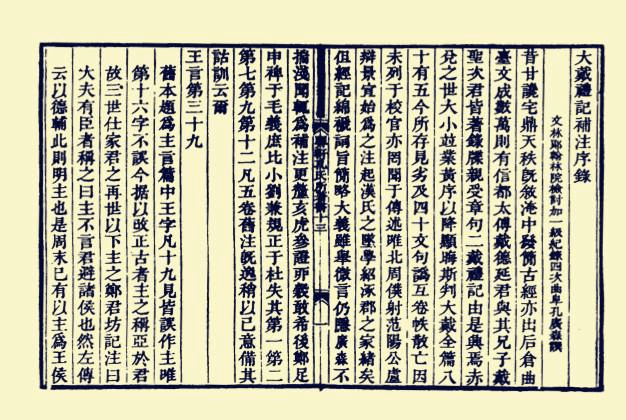 大戴禮記補注序錄
文林郎翰林院檢討加一級紀錄四次曲阜孔廣森譔
昔甘讓宅鼎天秩旣敘淹中發簡古經亦出后倉曲
臺文成數萬則有信都太傅戴德延君與其兄子戴
聖次君皆著錄牒親受章句二戴禮記由是興焉赤
之世大小竝業黃序以降顯晦斯判大戴全篇八
十有五今所存見劣及四十文句譌互卷帙散亡因
未列于校官亦罔聞于傳述唯北周僕射范陽公盧
辯景宣始爲之注起漢氏之墜學紹涿郡之家緒矣
但經記綿詞旨簡略大義雖舉微言仍隱廣森不
揣淺聞輒爲補注更釐亥虎參證丣穀敢希後鄭足
申裨于毛義庶比小劉兼規正于杜失其第一第二
第七第九第十二凡五卷舊注旣逸稍以己意備其
詁訓云爾
王言第三十九
舊本題爲主言篇中王字凡十九見皆誤作主唯
第十六字不誤今据以攺正古者主之稱亞於君
故三世仕家君之再世以下主之鄭君坊記注曰
大夫有臣者稱之曰主不言君避諸侯也然左傳
云以德輔此則明主也是周末已有以主爲王侯